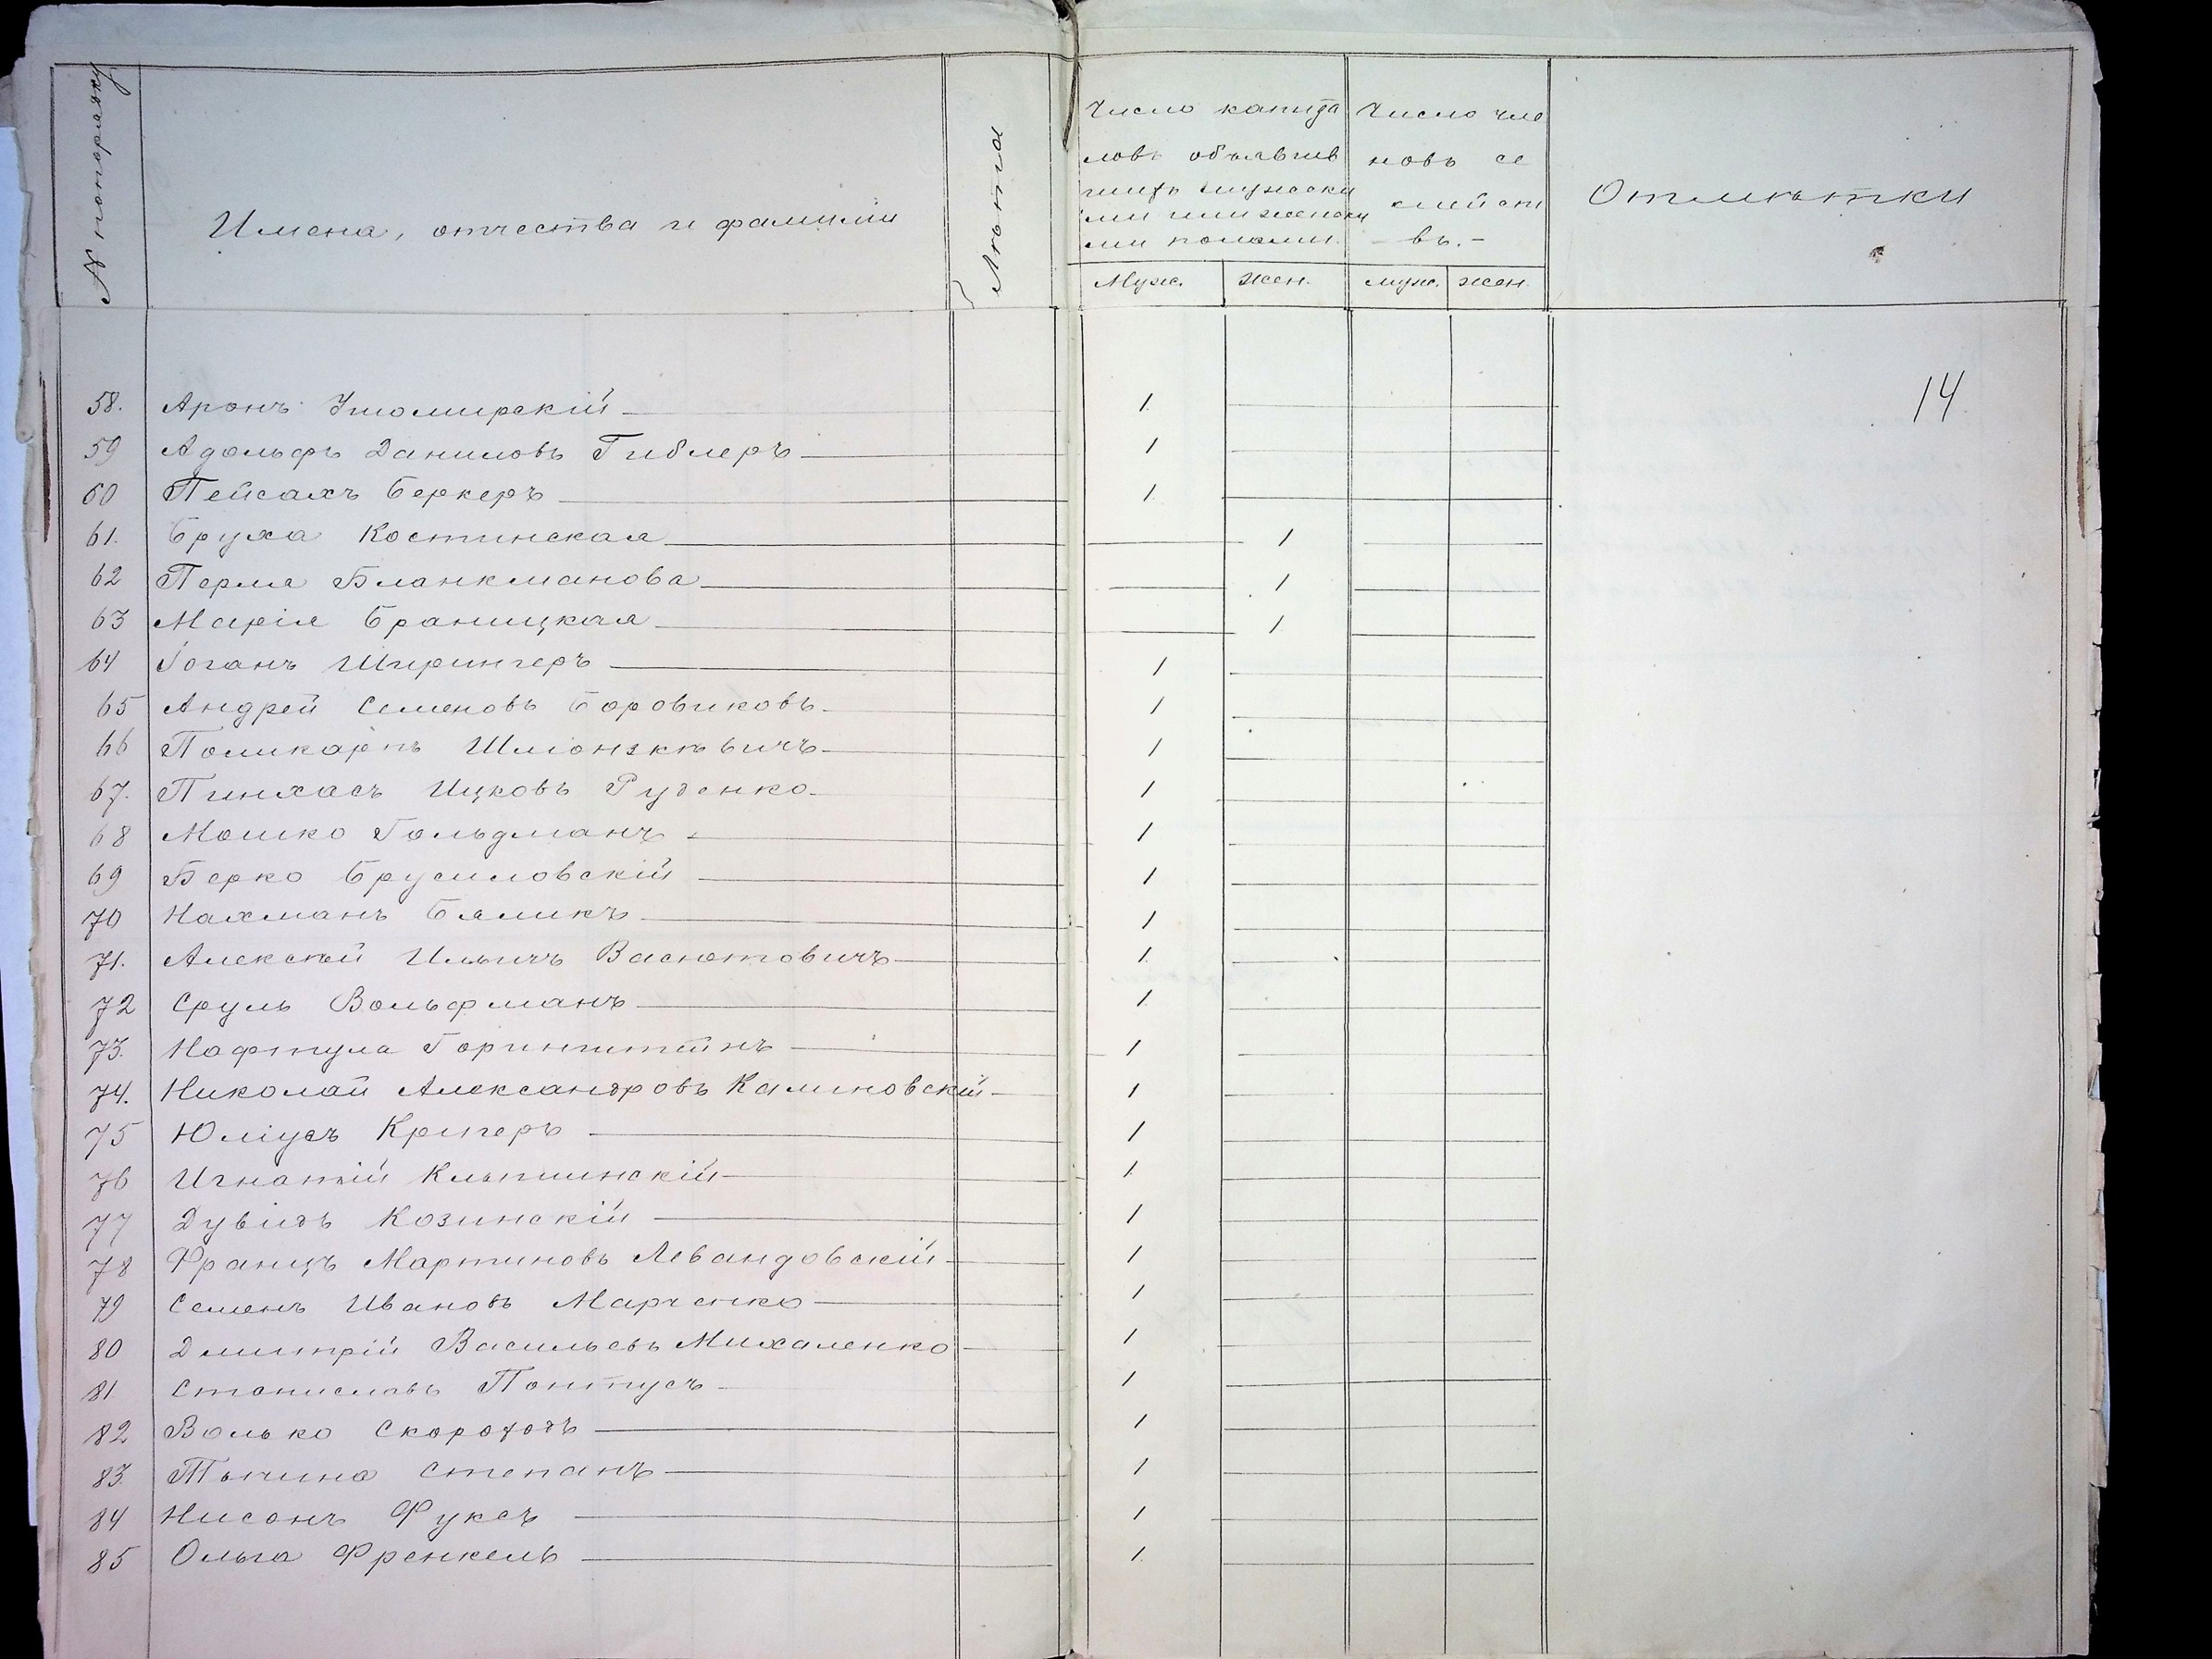 № по порядку
Имена, отчества и фамиліи
Лѣта
Число капита
ловъ объявив
шихъ мужски
ми или женски
ми полами.
Число чле
новъ се
мейст
въ.-
Отмѣтки
Муж. Жен. муж. жен.
14
58. Аронъ Утомирскій 1
59 Адольфъ Даниловъ Гиблеръ 1
60 Пейсахъ Беркеръ 1
61. Бруха Костинская 1
62 Перля Бланкманова 1
63 Марія Браницкая 1
64 Іоганъ Шпрингеръ 1
65 Андрей Семеновъ Боровиковъ 1
66 Поликарпъ Шміонзкѣвичъ 1
67. Пинхасъ Ицковъ Руденко 1
68 Мошко Гольдманъ 1
69 Берко Брусиловскій 1
70 Нахманъ Бяликъ 1
71. Алексѣй Ильичъ Васютовичъ 1
72 Сруль Вольфманъ 1
73. Нафтула Горинштейнъ 1
74. Николай Александровъ Калиновскій 1
75 Юліусъ Кригеръ 1
76 Игнатій 1
77 Дувидъ Козинскій 1
78 Францъ Мартиновъ Левандовскій 1
79 Семенъ Ивановъ Марченко 1
80 Дмитрій Васильевъ Михаленко 1
81. Станиславъ Понтусъ 1
82 Волько Скороходъ 1
83. Степанъ 1
84 Нисонъ Фуксъ 1
85 Ольга Френкель 1